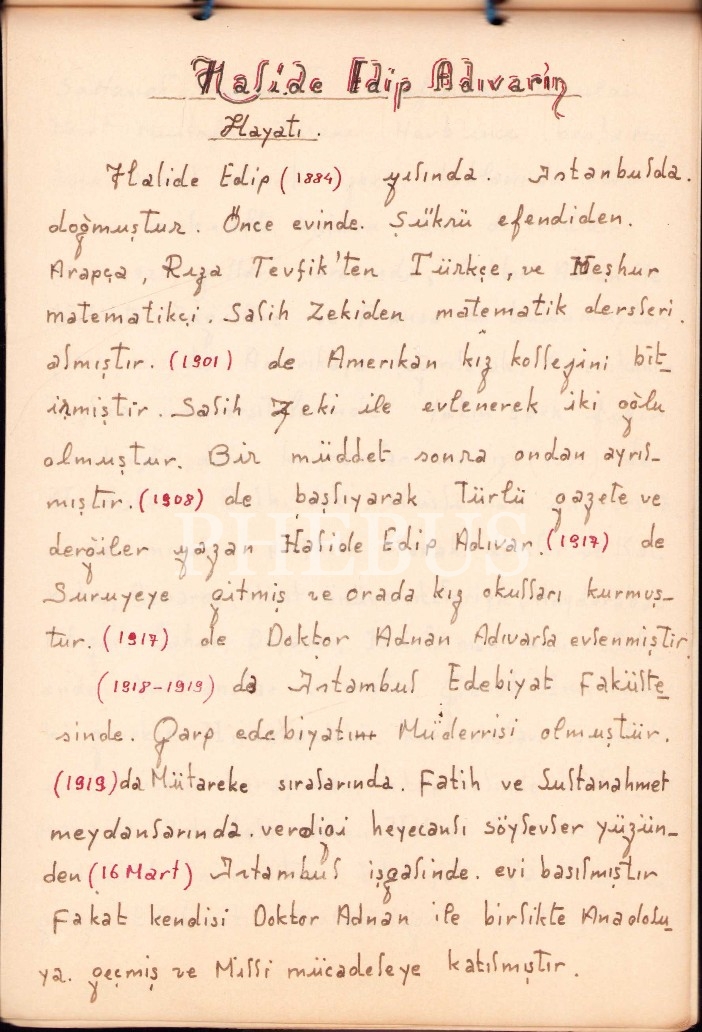 Halide Edip Adıvarın
Hayatı.
Halide Edip (1884) yılında. İstanbulda.
doğmuştur. Önce evinde. Şükrü efendiden.
Arapça, Rıza Tevfik'ten Türkçe, ve Meşhur
matematikçi. Salih Zekiden matematik dersleri.
almıştır. (1901) de Amerıkan kız kollejini bit_
irmiştir. Salih Zeki ile evlenerek iki oğlu
olmuştur. Bir müddet sonra ondan ayrıl_
mıştır. (1908) de başlıyarak türlü gazete ve
dergiler yazan Halide Edip Adıvar. (1917) de
Suruyeye gitmiş ve orada kız okulları kurmuş_
tur. (1917) de Doktor Adnan Adıvarla evlenmiştir.
(1918-1919) da İstambul Edebiyat Fakülte_
sinde. Garp edebiyatını Müderrisi olmuştür.
(1919) da Mütareke sıralarında. Fatih ve Sultanahmet
meydanlarında. verdiği heyecanlı söylevler yüzün_
den (16 Mart) İstambul işgalinde. evi basılmıştır
Fakat kendisi Doktor Adnan ile birlikte Anadolu_
ya. geçmiş ve Milli mücadeleye katılmıştır.
PHEBUS